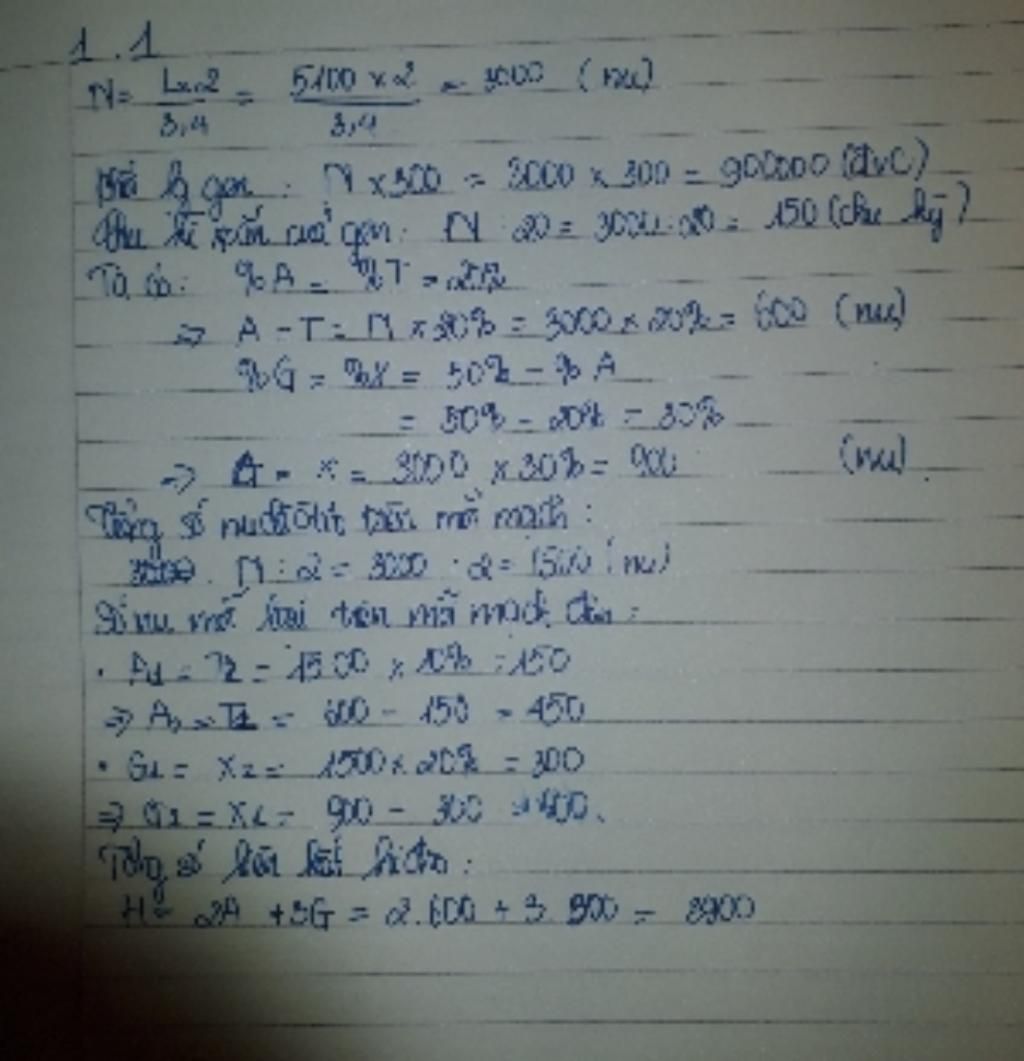 1.1
N = L x 2 / 3,4 = 5100 x 2 / 3,4 = 3000 (nu)
gen : N x 300 = 3000 x 300 = 900000 (đvC)
Chu kì xoắn của gen: N : 20 = 3000 : 20 = 150 (chu kỳ)
Ta có: %A = %T = 20%
=> A = T = N x 20% = 3000 x 20% = 600 (nu)
%G = %X = 50% - %A
= 50% - 20% = 30%
=> G = X = 3000 x 30% = 900 (nu)
Tổng số nuclêôtit trên mỗi mạch :
N : 2 = 3000 : 2 = 1500 (nu)
Số nu mỗi loại trên mỗi mạch đơn :
• A1 = T2 = 1500 x 10% = 150
=> A2 = T1 = 600 - 150 = 450
• G1 = X2 = 1500 x 20% = 300
=> G2 = X1 = 900 - 300 = 600.
Tổng số liên kết hiđrô :
H = 2A + 3G = 2.600 + 3.900 = 3900